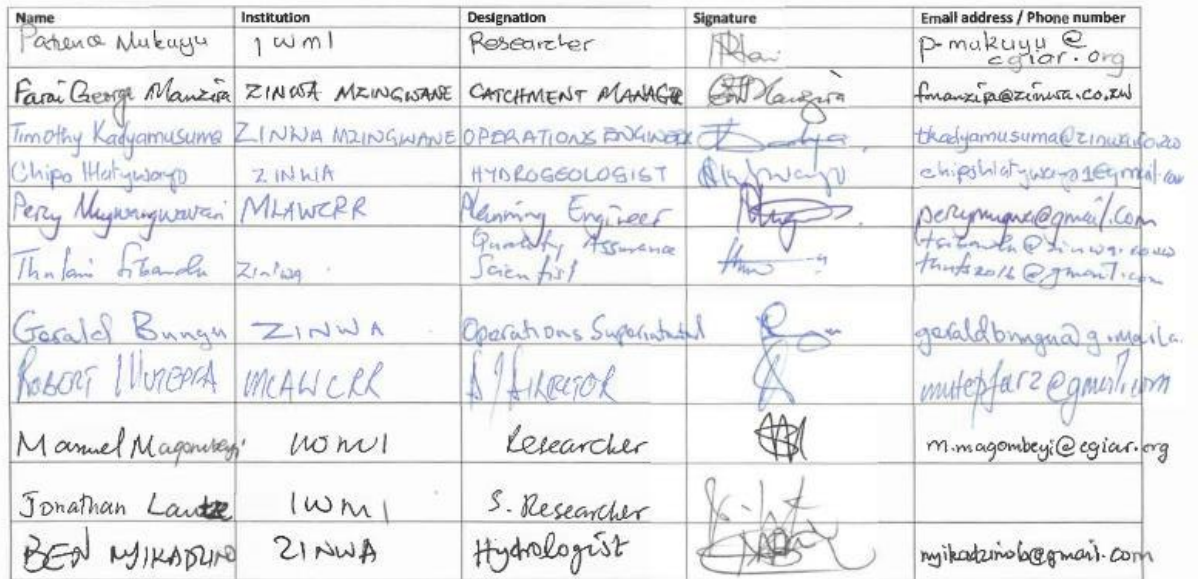 Name Institution Designation Signature Email address / Phone number
Patience Mukuyu IWMI Researcher p.mukuyu@
cgiar.org
Farai George Manzira ZINWA MZINGWANE CATCHMENT MANAGER fmanzira@zinwa.co.zw
Timothy Kadyamusuma ZINWA MZINGWANE OPERATIONS ENGINEER tkadyamusuma@zinwa.co.zw
Chipo Hlatywayo ZINWA HYDROGEOLOGIST chipohlatywayo1@gmail.com
Percy Mugwangwavari MLAWCRR Planning Engineer percymugwa@gmail.com
Quality Assurance
Thulani Sibanda Zinwa Scientist thuts2016@gmail.com
Gerald Bungu ZINWA Operations Superintendent
ROBERT MUTEPFA MLAWCRR A/DIRECTOR mutepfar2@gmail.com
Manuel Magombeyi IWMI Researcher m.magombeyi@cgiar.org
Jonathan Lautze IWMI S. Researcher
BEN NYIKADZINO ZINWA Hydrologist nyikadzinob@gmail.com